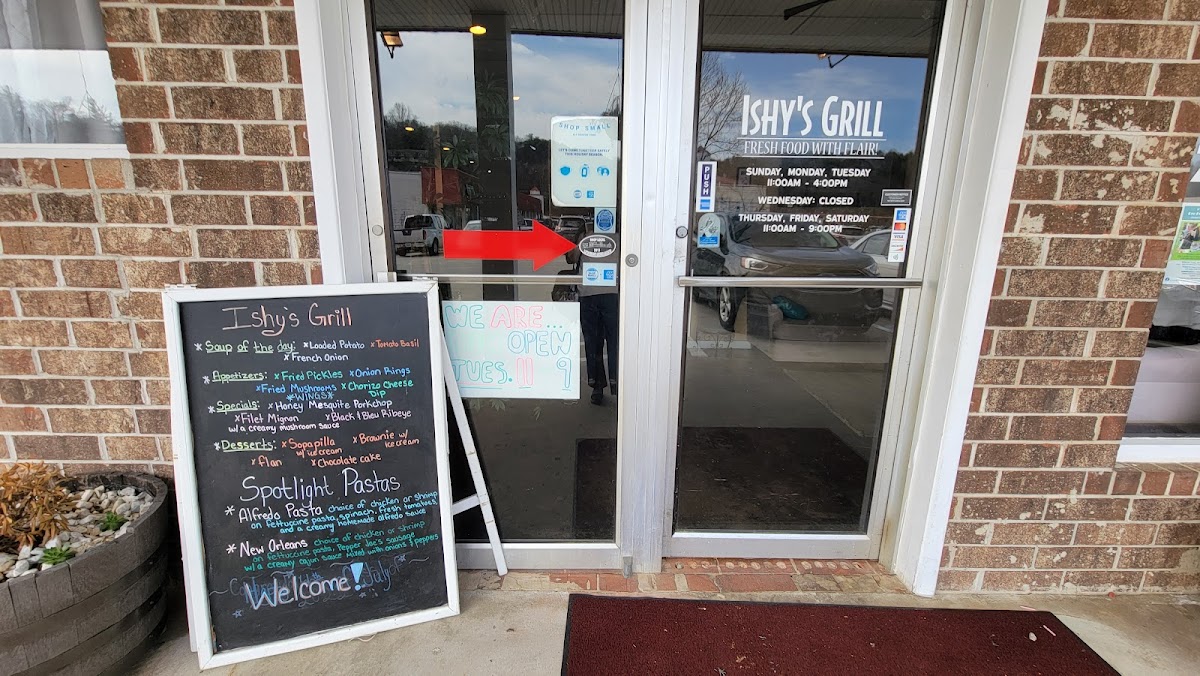 SHOP SMALL
ISHY'S GRILL
FRESH FOOD WITH FLAIR!
PUSH
SUNDAY, MONDAY, TUESDAY
11:00AM - 4:00PM
WEDNESDAY: CLOSED
THURSDAY, FRIDAY, SATURDAY
11:00AM - 9:00PM
VISA
WE ARE...
OPEN
TUES. 11 9
Ishy's Grill
* Soup of the day: *Loaded Potato *Tomato Basil
*French Onion
* Appetizers: *Fried Pickles *Onion Rings
*Fried Mushrooms *Chorizo Cheese
*WINGS* Dip
* Specials: *Honey Mesquite Porkchop
*Filet Mignon *Black & Bleu Ribeye
w/a creamy mushroom sauce
* Desserts: *Sopapilla *Brownie w/
w/ice cream ice cream
*flan *Chocolate cake
Spotlight Pastas
* Alfredo Pasta choice of chicken or shrimp
on fettuccine pasta, spinach, fresh tomatoes,
and a creamy homemade alfredo sauce
* New Orleans choice of chicken or shrimp
on fettuccine pasta, Pepper Joe's sausage
w/a creamy cajun sauce mixed with onions & peppers
Welcome!